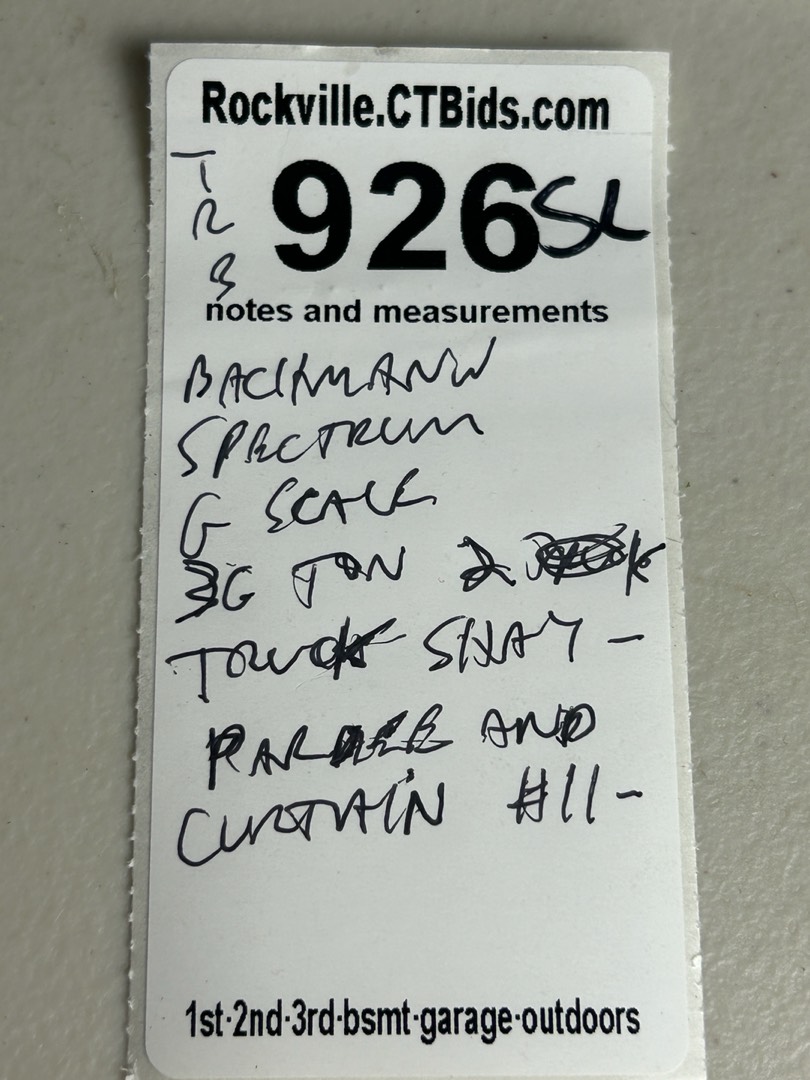 Rockville.CTBids.com
T
R
B
926 SL
notes and measurements
BACHMANN
SPECTRUM
G SCALE
36 TON 2
TRUCK SHAY -
PARDEE AND
CURTAIN #11 -
1st·2nd·3rd·bsmt·garage·outdoors